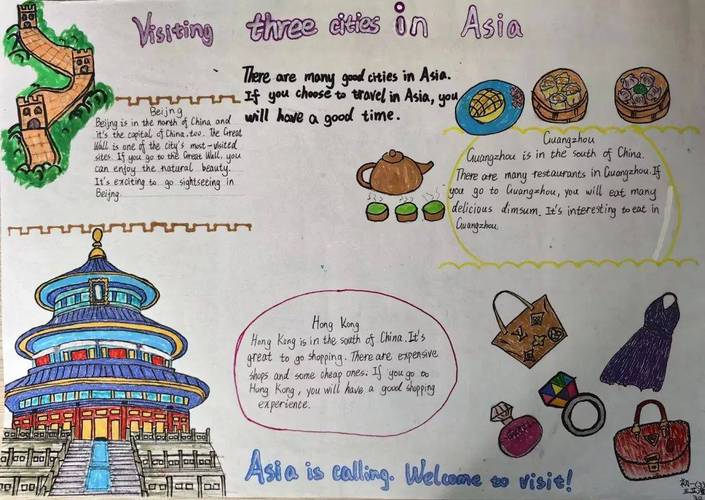 Visiting three cities in Asia
There are many good cities in Asia.
If you choose to travel in Asia, you
will have a good time.
Beijng
Beijng is in the north of China and
it's the capital of China, too. The Great
Wall is one of the city's most-visited
sites. If you go to the Great Wall, you
can enjoy the natural beauty.
It's exciting to go sightseeing in
Beijng.
Guangzhou
Guangzhou is in the south of China.
There are many restaurants in Guangzhou. If
you go to Guangzhou, you will eat many
delicious dimsum. It's interesting to eat in
Guangzhou.
Hong Kong
Hong Kong is in the south of China. It's
great to go shopping. There are expensive
shops and some cheap ones. If you go to
Hong Kong, you will have a good shopping
experience.
Asia is calling. Welcome to visit!